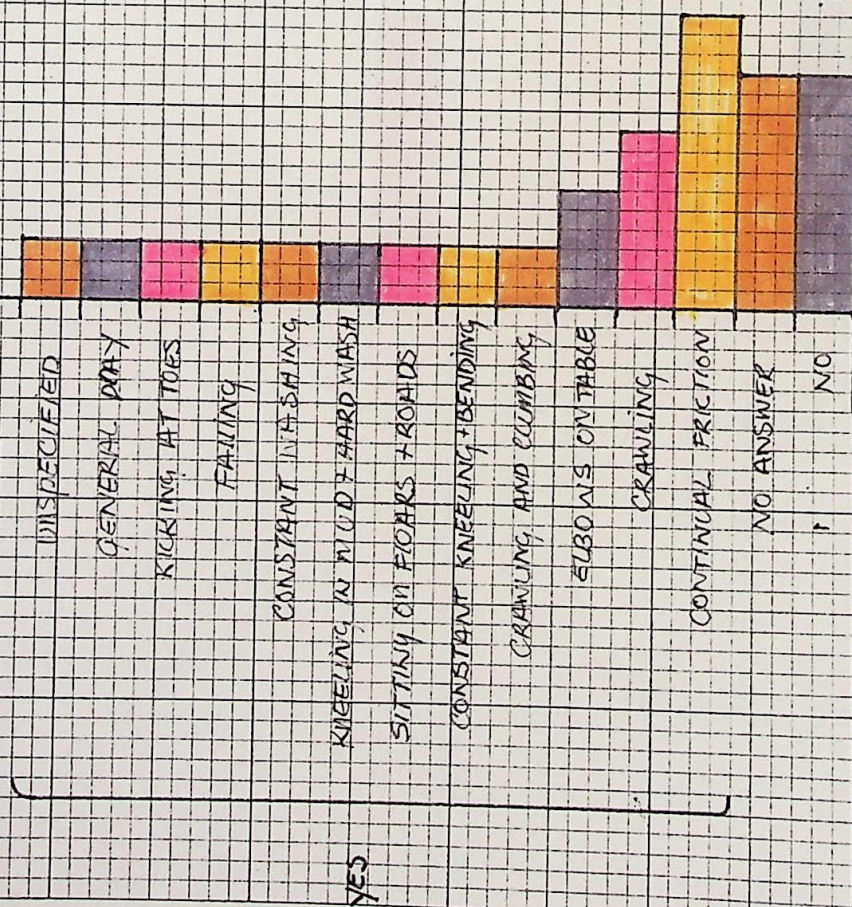 UNSPECIFIED
GENERAL PLAY
KICKING AT TOES
FALLING
CONSTANT WASHING
KNEELING IN MUD + HARD WASH
SITTINY ON FLOARS + ROADS
CONSTANT KNEELING + BENDING
CRAWLING AND CLIMBING
ELBOWS ON TABLE
CRAWLING
CONTINUAL FRICTION
NO ANSWER
NO
YES